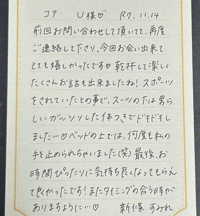 コア U様♡ R7.11.14
前回お問い合わせして頂いてて、再度
ご連絡して下さり、今回お会い出来て
とても嬉しかったです♡乾杯して楽しく
たくさんお話も出来ましたね！スポーツ
をされていたとの事で、スーツの下は男らし
いガッツリした体つきでドキドキし
ました…♡ベッドの上では、何度も私の
手を止められちゃいました(笑)最後、お
時間ぴったりに気持ち良くなってもらえ
て良かったです！またタイミングの合う時が
ありますように…♡ 新人係 すみれ